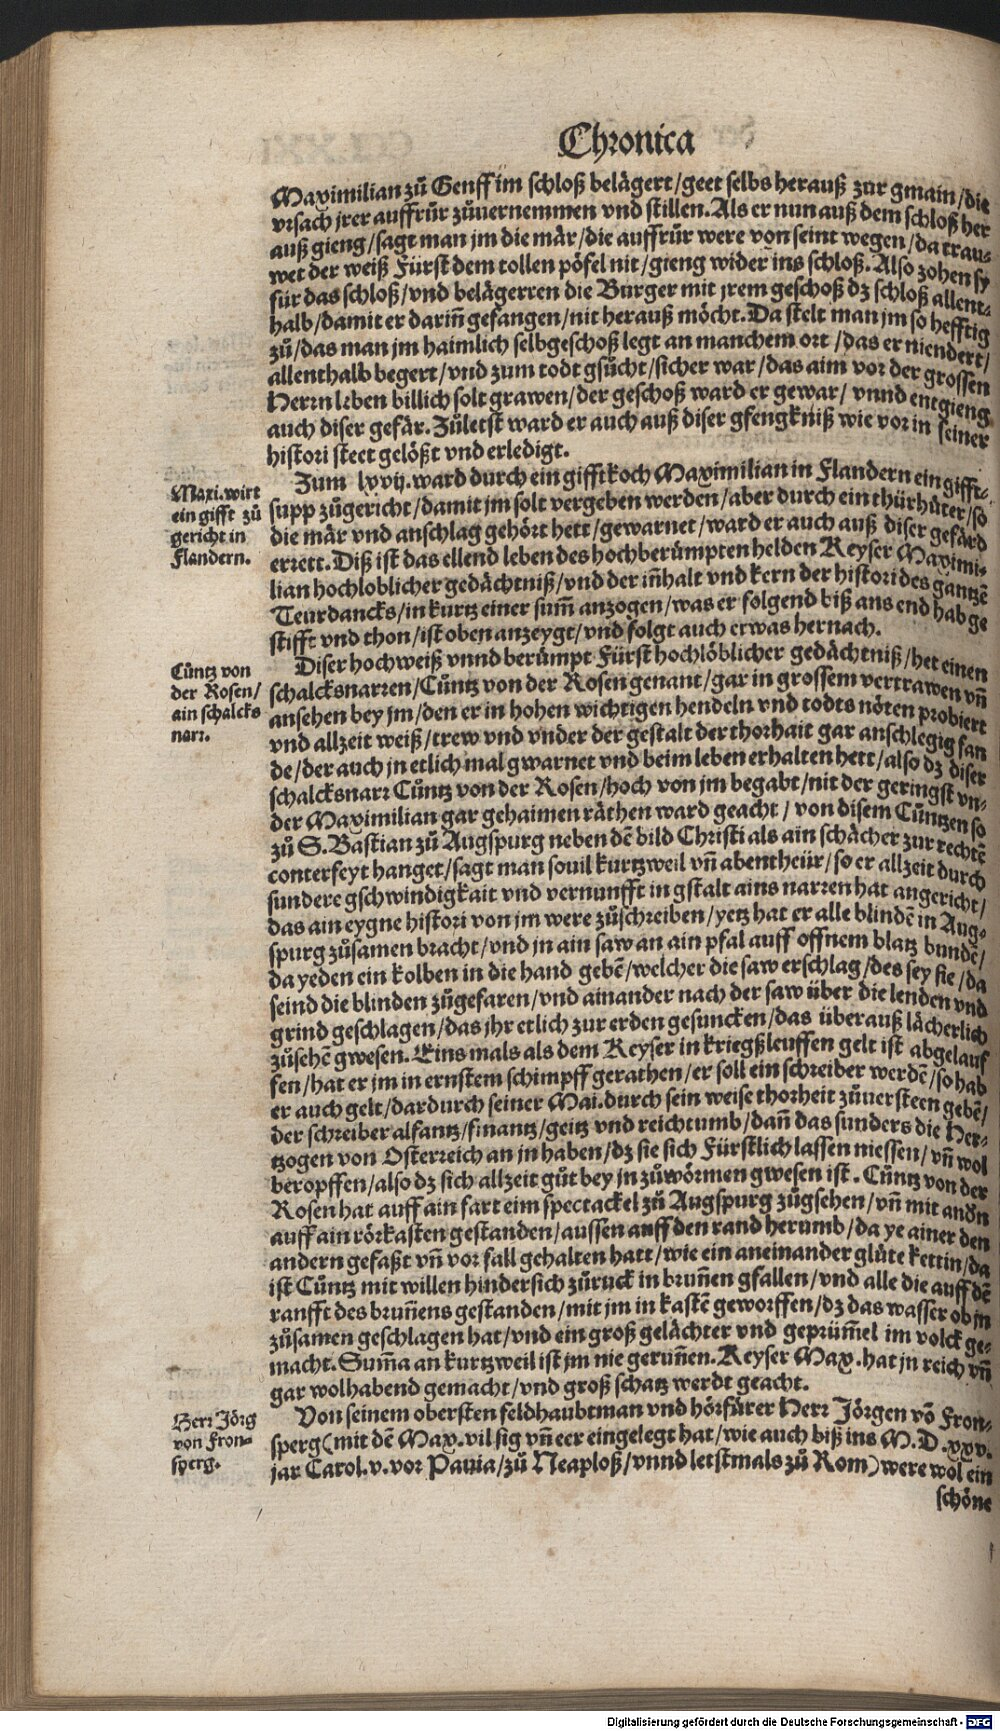 Chronica
Maximilian zů Genff im schloß belägert/geet selbs herauß zur gmain/die
vrsach jrer auffrůr zůuernemmen vnd stillen. Als er nun auß dem schloß her
auß gieng/sagt man jm die mår/die auffrůr were von seint wegen/da trau-
wet der weiß Fürst dem tollen pöfel nit/gieng wider ins schloß. Also zohen sy
für das schloß/vnd belägerren die Burger mit jrem geschoß dz schloß allent-
halb/damit er dariñ gefangen/nit herauß möcht. Da stelt man jm so hefftig
zů/das man jm haimlich selbgeschoß legt an manchem ort/das er niendert/
allenthalb begert/vnd zum todt gsůcht/sicher war/das aim vor der grossen
Herrn leben billich solt grawen/der geschoß ward er gewar/vnnd entgieng
auch diser gefär. Zůletst ward er auch auß diser gfengkniß wie vor in seiner
histori steet gelößt vnd erledigt.
Maxi. wirt
ein gifft zů
gericht in
Flandern.
Zum lxvij. ward durch ein gifftkoch Maximilian in Flandern ein gifft-
supp zůgericht/damit jm solt vergeben werden/aber durch ein thürhůter/so
die mår vnd anschlag gehört hett/gewarnet/ward er auch auß diser gefård
errett. Diß ist das ellend leben des hochberümpten helden Keyser Maximi-
lian hochloblicher gedächtniß/vnd der iñhalt vnd kern der histori des gantzẽ
Teurdancks/in kurtz einer sum̃ anzogen/was er folgend biß ans end hab ge
stifft vnd thon/ist oben anzeygt/vnd folgt auch etwas hernach.
Cůntz von
der Rosen/
ain schalcks
narr.
Diser hochweiß vnnd berümpt Fürst hochlöblicher gedächtniß/het einen
schalcksnarren/Cůntz von der Rosen genant/gar in grossem vertrawen vñ
ansehen bey jm/den er in hohen wichtigen hendeln vnd todts nöten probiert
vnd allzeit weiß/trew vnd vnder der gestalt der thorhait gar anschlegig fan
de/der auch jn etlich mal gwarnet vnd beim leben erhalten hett/also dz diser
schalcksnarr Cůntz von der Rosen/hoch von jm begabt/nit der geringst vn-
der Maximilian gar gehaimen råthen ward geacht/von disem Cůntzen so
zů S. Bastian zů Augspurg neben dẽ bild Christi als ain schächer zur rechtẽ
conterfeyt hanget/sagt man souil kurtzweil vñ abentheür/so er allzeit durch
sundere gschwindigkait vnd vernunfft in gstalt ains narren hat angericht/
das ain eygne histori von jm were zůschreiben/yetz hat er alle blindẽ in Aug-
spurg zůsamen bracht/vnd jn ain saw an ain pfal auff offnem blatz bundẽ/
da yeden ein kolben in die hand gebẽ/welcher die saw erschlag/des sey sie/da
seind die blinden zůgefaren/vnd ainander nach der saw über die lenden vnd
grind geschlagen/das jhr etlich zur erden gesuncken/das überauß lächerlich
zůsehẽ gwesen. Eins mals als dem Keyser in kriegßleuffen gelt ist abgelauf
fen/hat er jm in ernstem schimpff gerathen/er soll ein schreiber werdẽ/so hab
er auch gelt/dardurch seiner Mai. durch sein weise thorheit zůuersteen gebẽ/
der schreiber alfantz/finantz/geitz vnd reichtumb/dañ das sunders die Her-
tzogen von Osterreich an jn haben/dz sie sich Fürstlich lassen niessen/vñ wol
beropffen/also dz sich allzeit gůt bey jn zůwörmen gwesen ist. Cůntz von der
Rosen hat auff ain fart eim spectackel zů Augspurg zůgsehen/vñ mit andn
auff ain rörkasten gestanden/aussen auff den rand herumb/da ye ainer den
andern gefaßt vñ vor fall gehalten hatt/wie ein aneinander glůte kettin/da
ist Cůntz mit willen hindersich zůruck in bruñen gfallen/vnd alle die auff dẽ
ranfft des bruñens gestanden/mit jm in kastẽ geworffen/dz das wasser ob jn
zůsamen geschlagen hat/vnd ein groß gelächter vnd geprüm̃el im volck ge-
macht. Sum̃a an kurtzweil ist jm nie geruñen. Keyser Max. hat jn reich vñ
gar wolhabend gemacht/vnd groß schatz werdt geacht.
Herr Jörg
von Fron-
sperg.
Von seinem obersten feldhaubtman vnd hörfürer Herr Jörgen võ Fron-
sperg (mit dẽ Max. vil sig vñ eer eingelegt hat/wie auch biß ins M. D. xxv.
jar Carol. v. vor Pauia/zů Neaploß/vnnd letstmals zů Rom) were wol ein
schöne
Digitalisierung gefördert durch die Deutsche Forschungsgemeinschaft - DFG